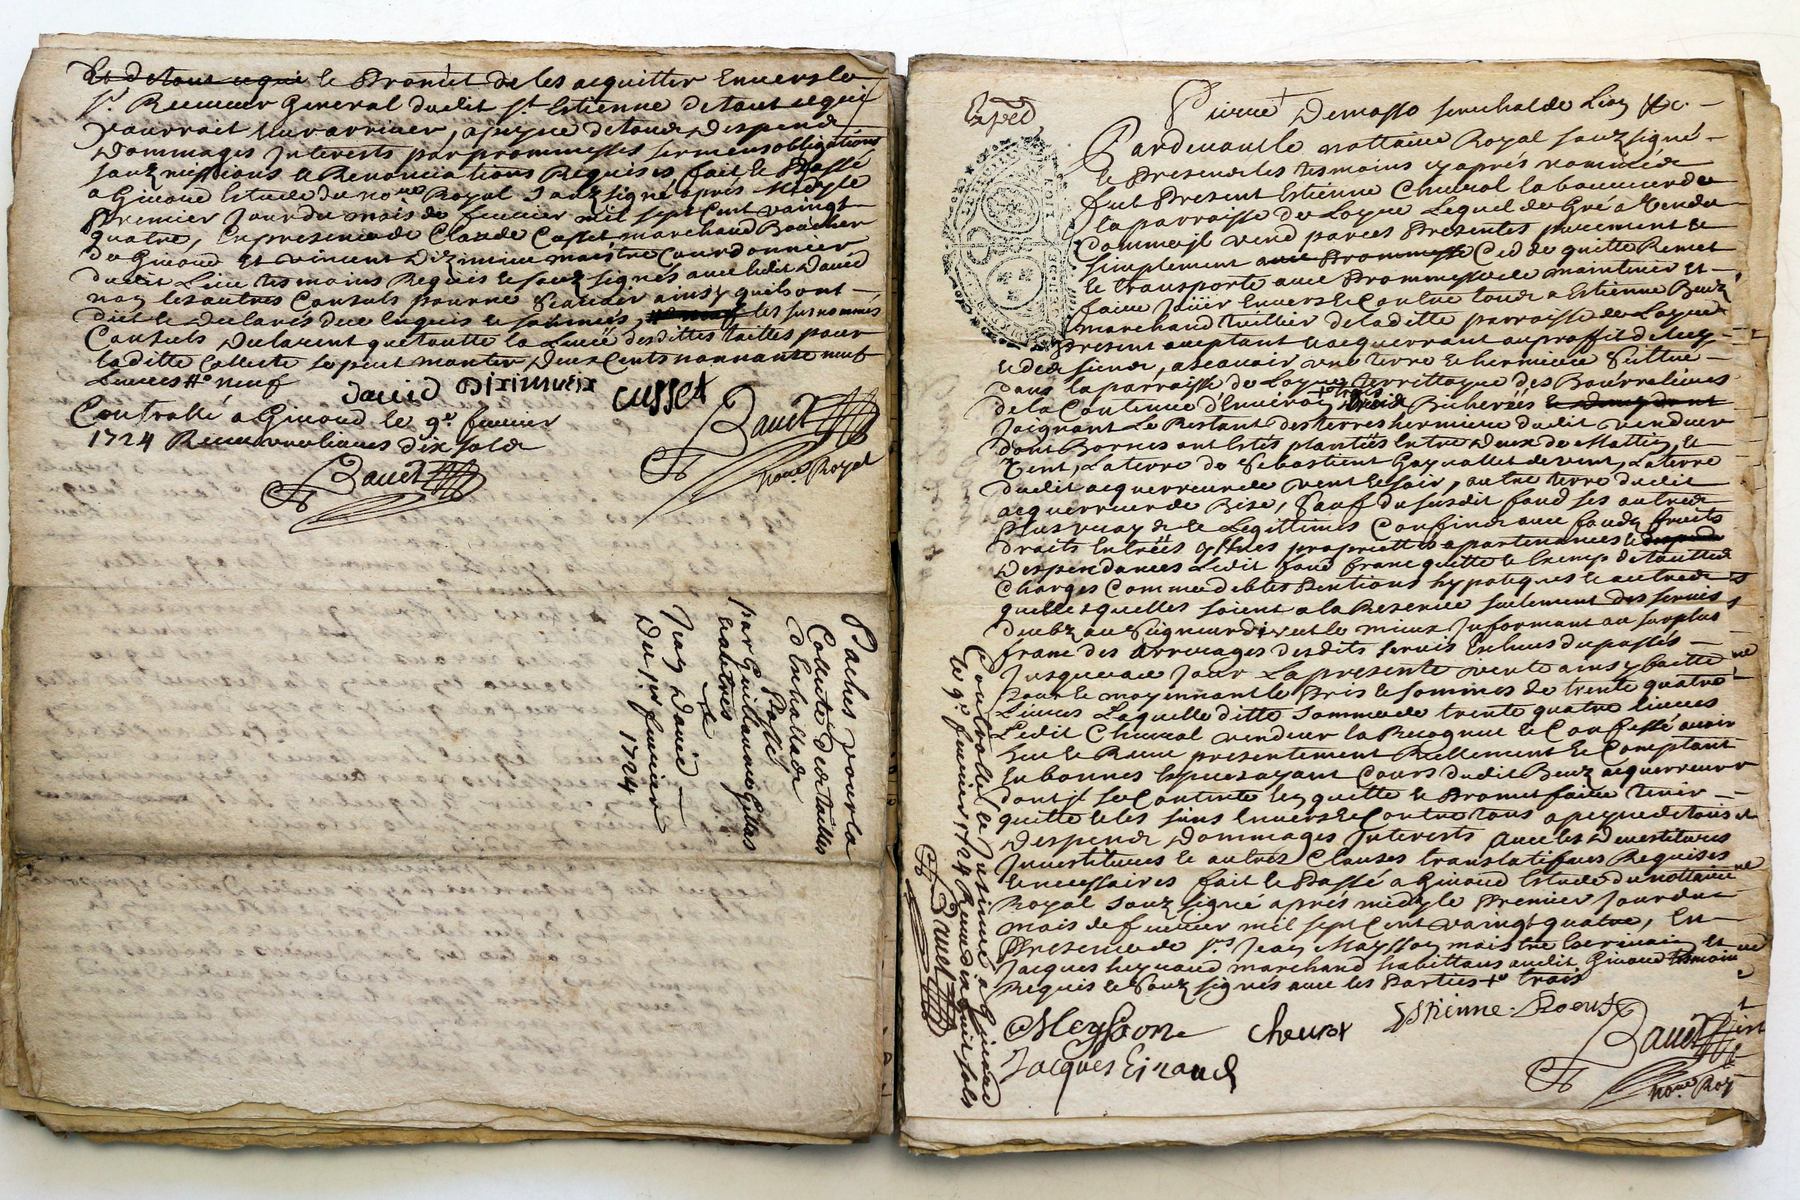 Et de tout ce qui et Promet de les acquitter Envers le
Sr. Receveur General dudit St. Estienne de tout ce qui
pourrait leur arriver, a peyne de tous despens
Dommages Interests par prommesses serments obligations
souzmissions et Renonciations Requises fait et Passé
a Givaud Estude du nore Royal Souzsigné après Midy le
Premier Jour du mois de fevrier mil sept Cent vaingt
quatre, En presence de Claude Cusset marchand Boucher
de Givaud et vincent Diximieux maistre Courdonnier
dudit Lieu tesmoins Requis et souz signés avec ledit David
non les autres Consuls pour ne sçavoir ainsy quils ont
dict et declarés de ce Enquis et sommés, les susnommés
Consuls declarent que toutte la Livrée desdittes tailles pour
laditte Collecte se peut monter deux Cents nonnante neuf
Livres neuf
david Diximieux Cusset
Controllé a Givaud le 9e. fevrier
1724 Receu dix sols
nore Royal
Paches pour la
Collecte des tailles
Passé
par Guillaume
et autres
a
Jean David
Du 1er fevrier
1724
Exped
Pierre Demasso seneschal de Lion &c.
Pardevant le nottaire Royal souzsigné
et Presents les tesmoins cy après nommés
fut Present Estienne Chevrol laboureur de
la parroisse de Loyre Lequel de Gré a Vendu
Comme jl vend par ces Presentes purement et
simplement Cedde quitte Remet
et transporte avec Prommesse de maintenir et
faire Joüir Envers et Contre tous a Estienne
marchand tuillier de laditte parroisse de Loyre
Present acceptant et acquerrant au proffit de luy
et des siens, a sçavoir une terre et hermiere scittuée
dans la parroisse de Loyre territtoyre des
de la Contenue d'Environ trois Bicherées
Joignant Le Restant des terres hermieres dudit vendeur
dont Bornes ont Estés plantées Entre deux de Mattin, et
Vent, La terre de Sebastient de vent, La terre
dudit acquerreur de vent et soir, autre terre dudit
acquerreur de Bize, Sauf du susdit fond ses autres
Plus vrays et Legittimes Confins avec fonds fruits
droits Entrées yssues propriettes apartenances
Despendances Ledit fond franc quitte et Exempt de touttes
Charges Comme debtes Pentions hypoteques et autres
quelles quelles soient a la Reserve seulement des servis
deubz au Seigneur direct le mieux Informant au surplus
franc des Arreirages desdits servis Escheus du passés
Jusques a ce Jour La presente vente ainsy faitte
pour et moyennant le Pris et sommes de trente quatre
Livres Laquelle ditte somme de trente quatre livres
Ledit Chevrol vendeur la Recogneu et Confessé avoir
heu et Receu presentement Reellement et Comptant
En bonnes Especes ayant Cours dudit acquerreur
dont jl se Contente En quitte et Promet faire tenir
quitte et les siens Envers et Contre tous a peyne de tous
Despens Dommages Interests avec les Devestitures
Investitures et autres Clauses translatifves Requises
et necessaires fait et Passé a Givaud Estude du nottaire
Royal souz signé après midy le Premier Jour du
mois de fevrier mil sept Cent vaingt quatre, En
Presence de Sr. Jean Meysson maistre Escrivain et
Jacques heyraud marchand habittans audit Givaud tesmoins
Requis et souz signés avec les Parties trois
Meysson Chevrol Estienne
Jacques Eiraud
nore. Roy
Controllé et Insinué a Givaud
le 9e. fevrier 1724 Receu dix huit sols